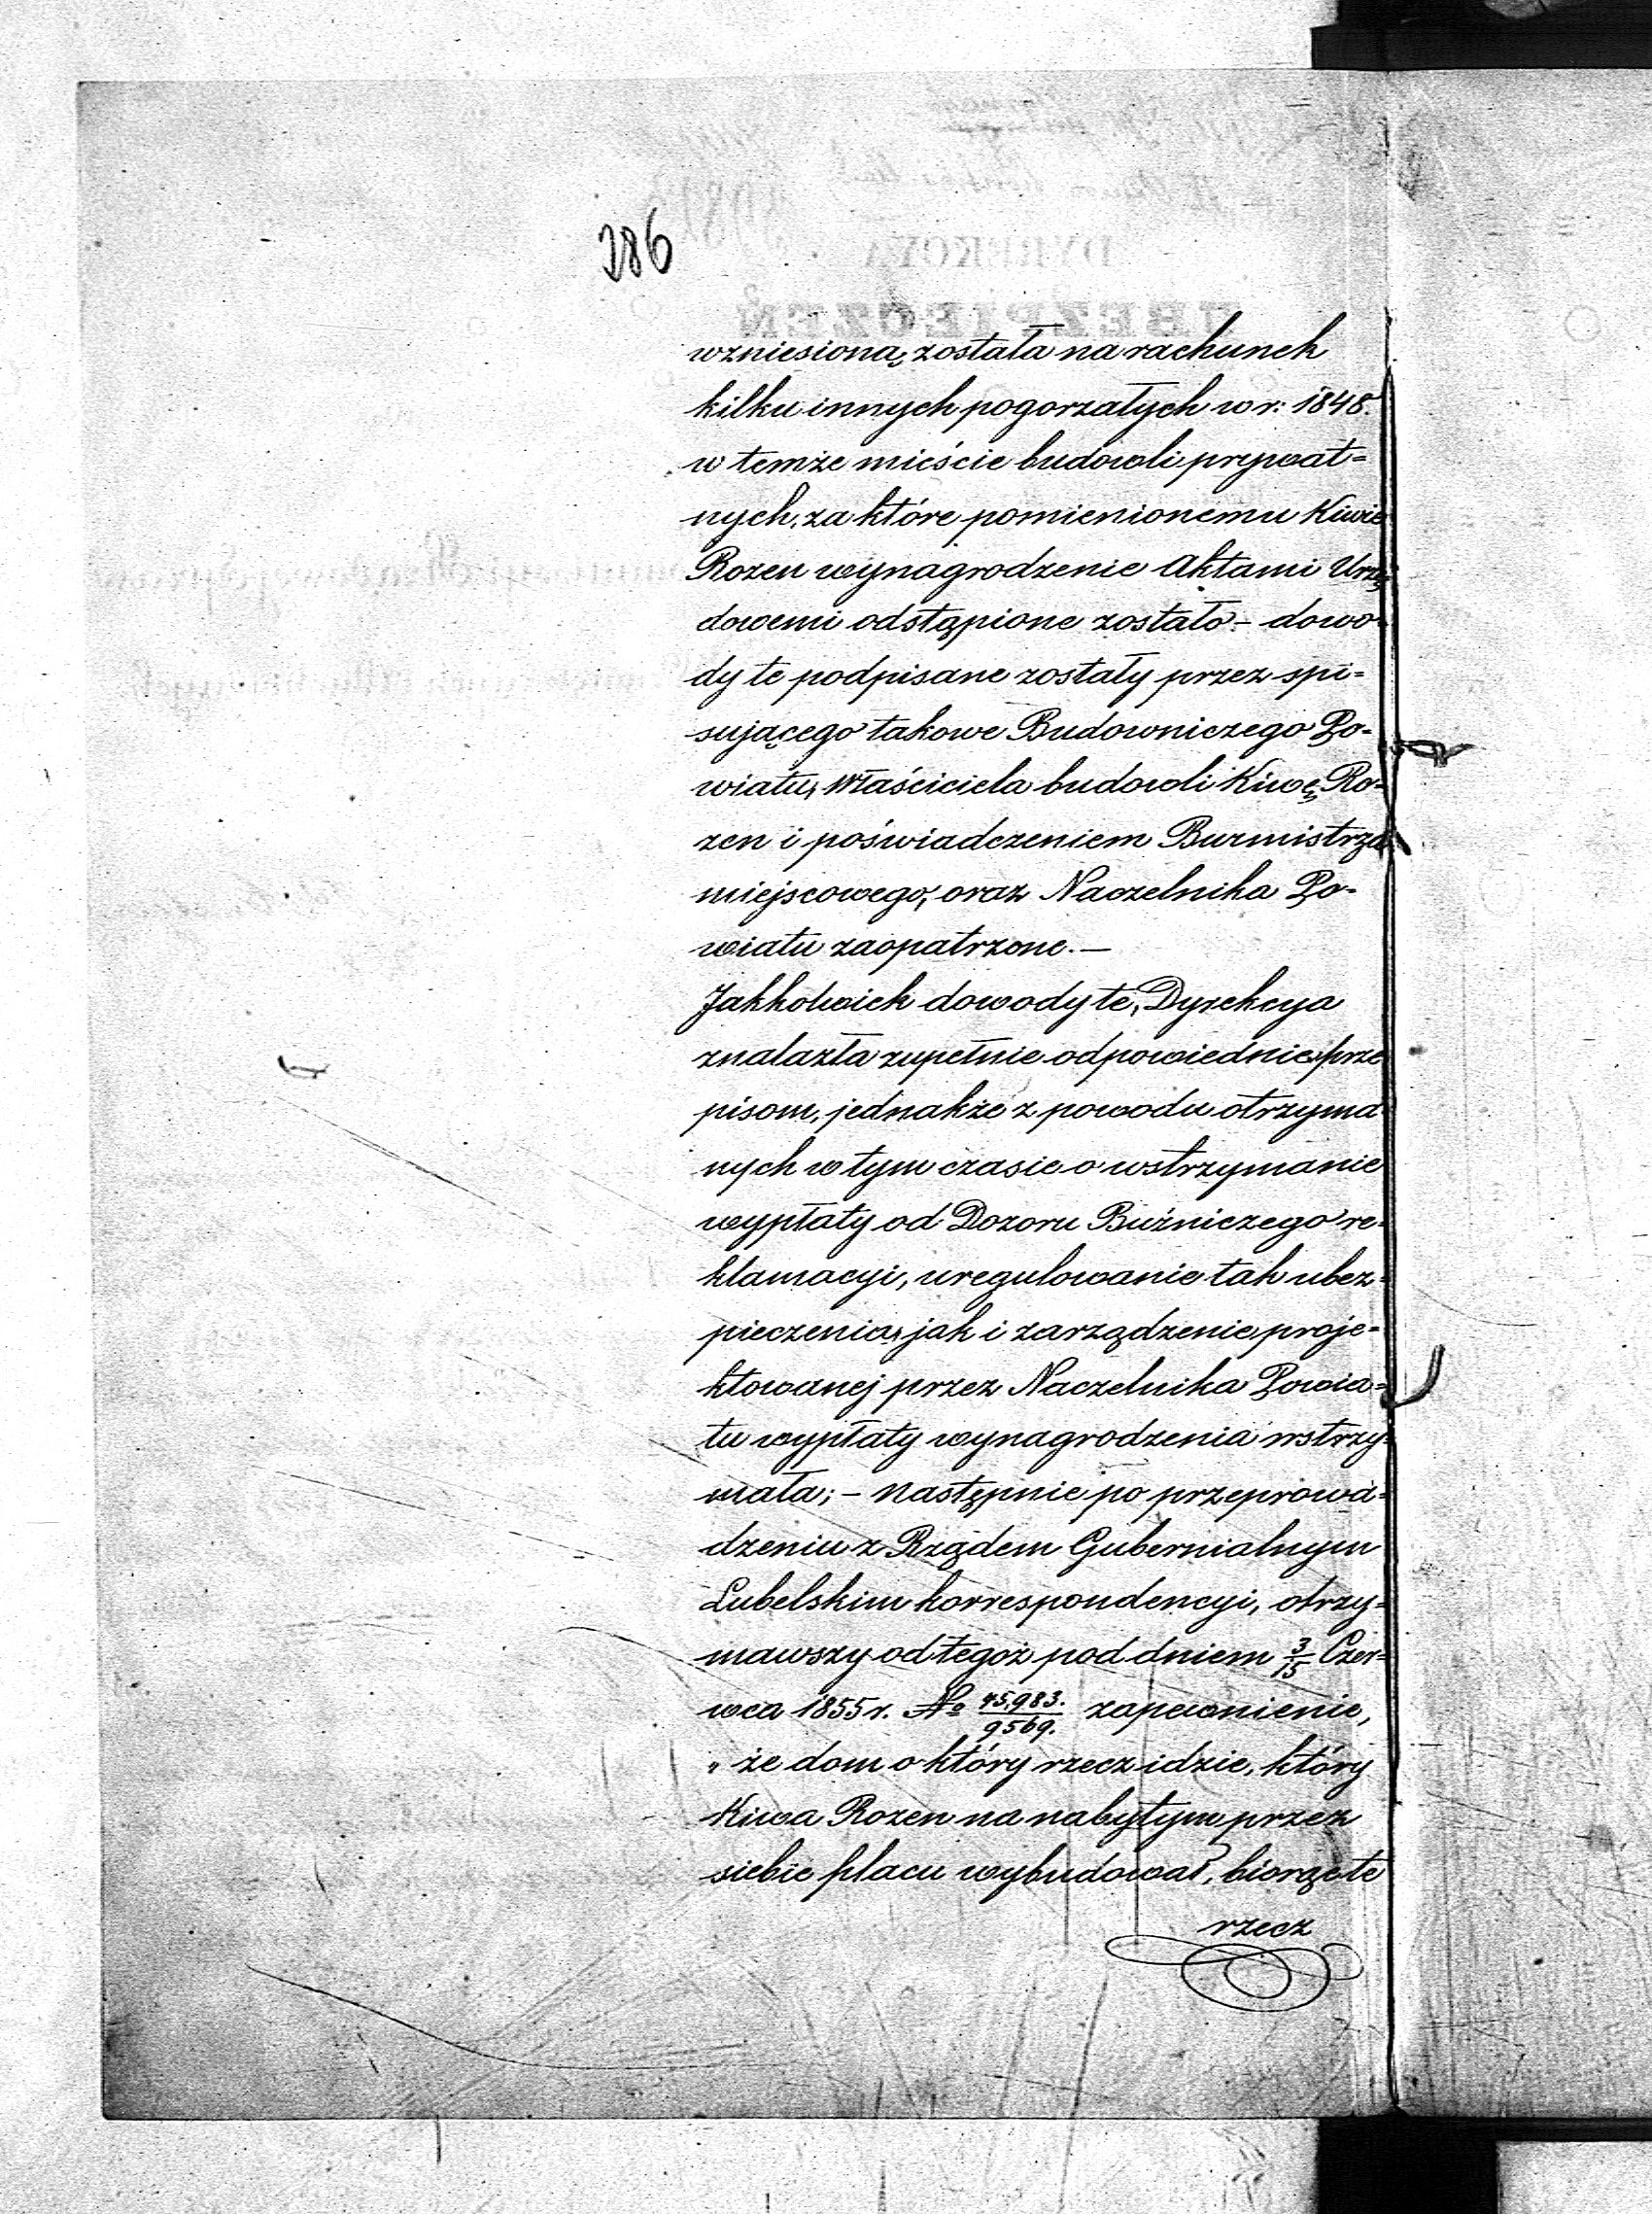 286
wzniesioną została na rachunek
kilku innych pogorzałych w r: 1848.
w temże mieście budowli prywat=
nych, za które pomienionemu Kiwie
Rozen wynagrodzenie Aktami Urzę
dowemi odstąpione zostało – dowo=
dy te podpisane zostały przez spi=
sującego takowe Budowniczego Po=
wiatu, właściciela budowli Kiwę Ro=
zen i poświadczeniem Burmistrza
miejscowego, oraz Naczelnika Po=
wiatu zaopatrzone. –
Jakkolwiek dowody te, Dyrekcya
znalazła zupełnie odpowiednie prze
pisom, jednakże z powodu otrzyma
nych w tym czasie o wstrzymanie
wypłaty od Dozoru Bużniczego re=
klamacyi, uregulowanie tak ubez=
pieczenia, jak i zarządzenie proje=
ktowanej przez Naczelnika Powia=
tu wypłaty wynagrodzenia wstrzy=
mała; – następnie po przeprowa=
dzeniu z Rządem Gubernialnym
Lubelskim korrespondencyi, otrzy=
mawszy od tegoż pod dniem 3/15 Czer=
wca 1855 r. № 45,983./9569. zapewnienie,
„ że dom o który rzecz idzie, który
Kiwa Rozen na nabytym przez
siebie placu wybudował, biorąc te
rzecz